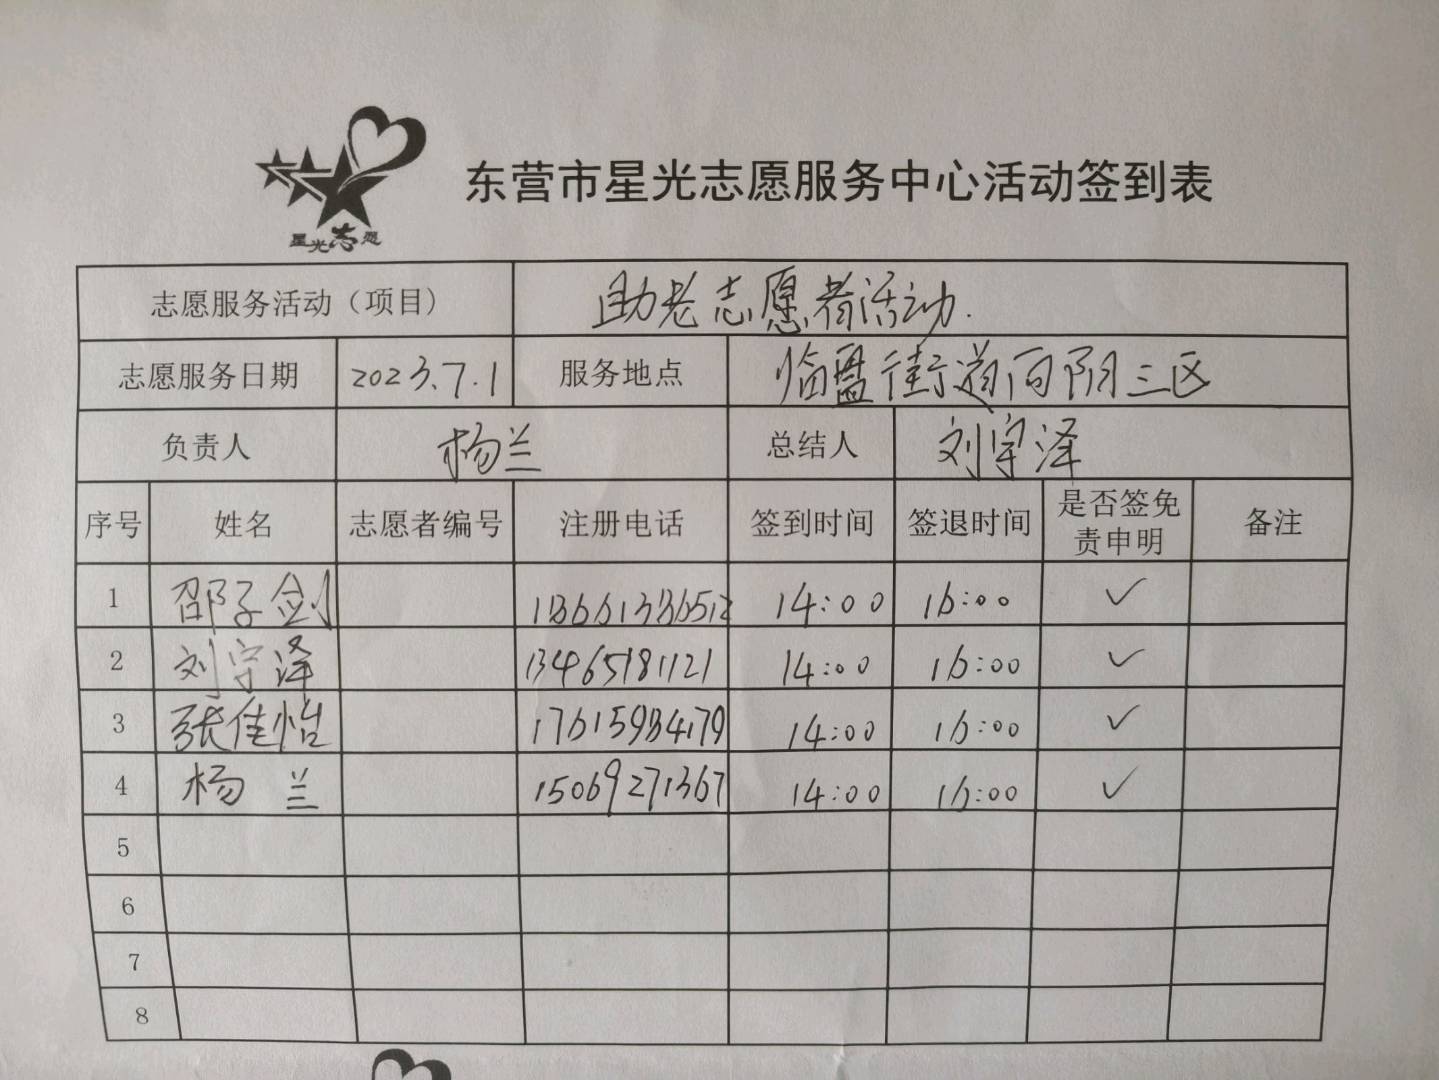 星光志愿
东营市星光志愿服务中心活动签到表
志愿服务活动（项目） 助老志愿者活动.
志愿服务日期 2023.7.1 服务地点 临盘街道向阳三区
负责人 杨兰 总结人 刘宇泽
序号 姓名 志愿者编号 注册电话 签到时间 签退时间 是否签免责申明 备注
1 邵子剑 14:00 16:00 ✓
2 刘宇泽 13465181121 14:00 16:00 ✓
3 张佳怡 17615934179 14:00 16:00 ✓
4 杨兰 15069271367 14:00 16:00 ✓
5
6
7
8